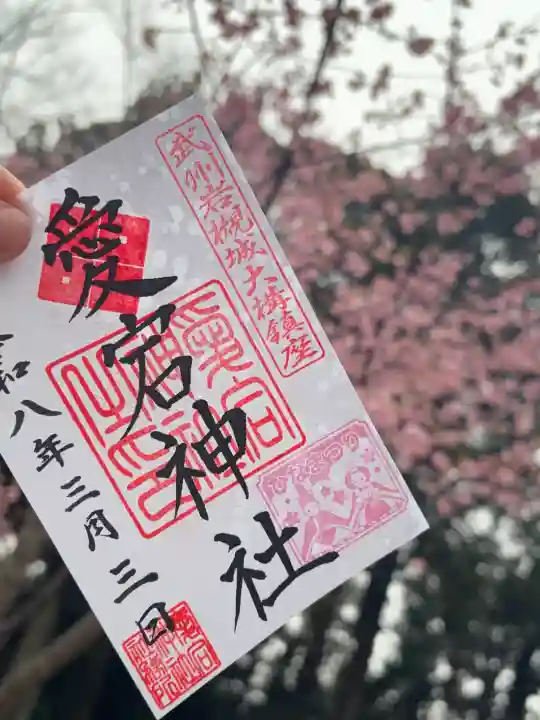 武州岩槻城大構鎮座
愛宕神社
ひなまつり
令和八年三月三日